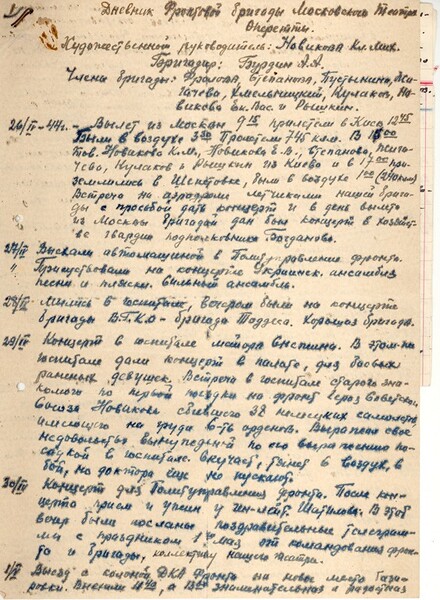 Дневник Фронтовой бригады Московского Театра
Оперетты.
Художественный руководитель: Новикова Кл. Мих.
Бригадир: Бурдин А.А.
Члены бригады: Фролова, Степанова, Пустынина,
Хмельницкий, Кулаков, Но-
викова Ек. Вас. и Рышкин.
26/IV-44г. - Вылет из Москвы 9 15 прилетели в Киев 12 45
Были в воздухе 3 30 Пролетели 745 клм. В 16 00
Новикова К.М., Новикова Е.В., Степанова,
Кулаков и Рышкин из Киева и в 17 00 при-
землились в Шепетовке, были в воздухе 1 00
Встреча на аэродроме летчиками нашей брига-
ды с просьбой дать концерт и в день вылета
из Москвы бригадой дан был концерт в хозяйст-
ве гвардии подполковника Богданова.
27/IV Выехали автомашиной в Политуправление фронта.
" Присутствовали на концерте Украинск. ансамбля
песни и пляски. Сильный ансамбль.
28/IV Мылись в госпитале, вечером были на концерте
бригады В.Г.К.О - бригада Таддеса. Хорошая бригада.
29/IV Концерт в госпитале майора В этом же
госпитале дали концерт в палате, для
раненых девушек. Встреча в госпитале старого зна-
комого по первой поездке на фронт героя Советского
Союза Новикова сбившего 28 немецких самолетов,
имеющего на груди 6-ть орденов. Выражал свое
недовольство вынужденной по его выражению по-
садкой в госпитале. Скучает, тянет в воздух, в
бой, но доктора еще не пускают.
30/IV Концерт для Политуправления фронта. После кон-
церта прием и ужин у ген-лейт. Шатилова. В этот
вечер были посланы поздравительные телеграм-
мы с праздником 1ое мая от командования фрон-
та и бригады, коллективу нашего театра.
1/V Выезд с колонной ДКА Фронта на новое место бази-
ровки. Выехали а знаменательная и радостная